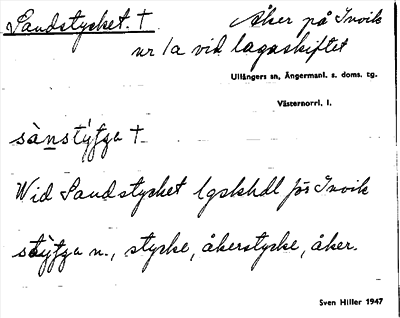 Sandstycket. † Åker på Invik
nr 1a vid lagaskiftet
Ullångers sn, Ångermanl. s. doms. tg.
Västernorrl. l.
sànstýtga †
Wid Sandstycket lgskhdl för Invik
stýtga n., stycke, åkerstycke, åker.
Sven Hiller 1947